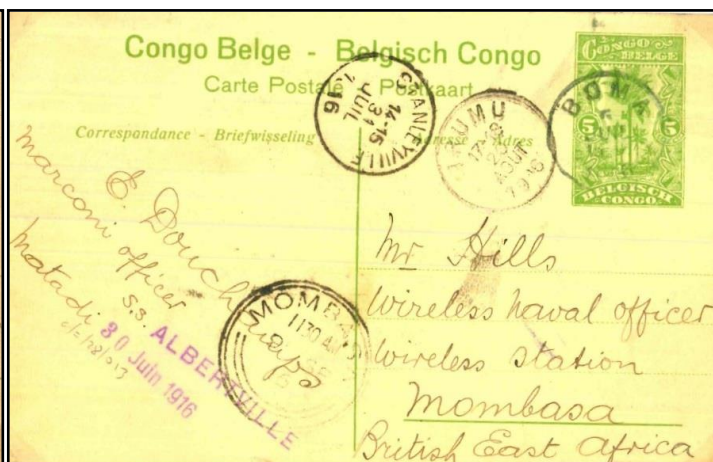 Congo Belge - Belgisch Congo
Carte Postale - Postkaart
Correspondance - Briefwisseling
Adresse - Adres
CONGO BELGE
5 5
BELGISCH CONGO
BOMA
STANLEYVILLE
14-15
31
JUIL
16
17-18
20
AOUT
E. Douchamps
Marconi officer
S.S. ALBERTVILLE
Matadi
30 Juin 1916
MOMBASA
1130 AM
Mr Hills
Wireless naval officer
Wireless Station
Mombasa
British East Africa